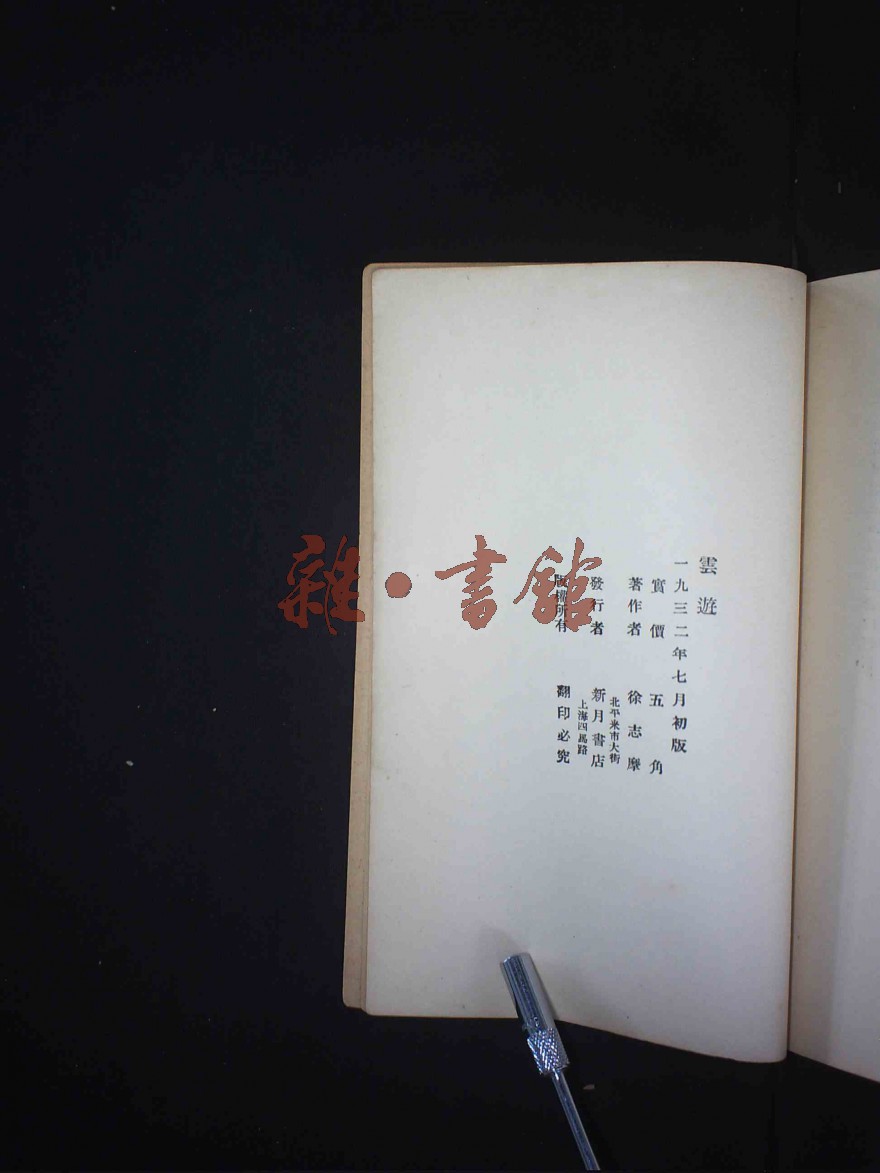 雲遊
一九三二年七月初版
實價五角
著作者 徐志摩
北平米市大街
發行者 新月書店
上海四馬路
版權所有 翻印必究
雜·書館